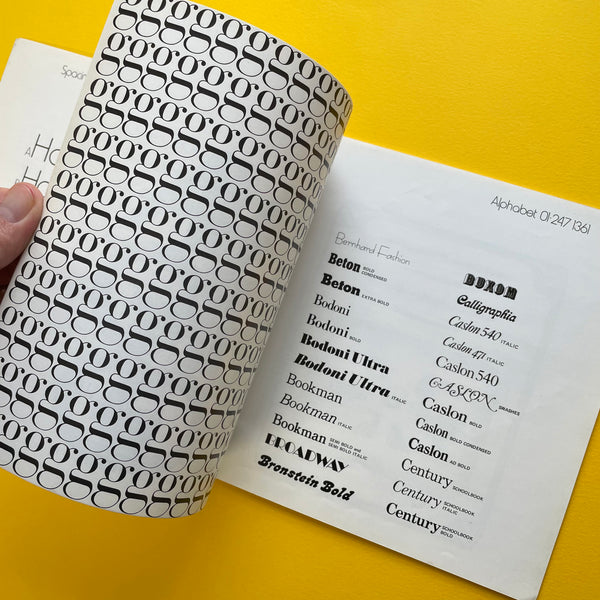 Alphabet 01·247 1361
Bernhard Fashion
Beton BOLD CONDENSED
Beton EXTRA BOLD
Bodoni
Bodoni BOLD
Bodoni Ultra
Bodoni Ultra ITALIC
Bookman
Bookman ITALIC
Bookman SEMI BOLD and SEMI BOLD ITALIC
BROADWAY
Bronstein Bold
BUXOM
Calligraphia
Caslon 540 ITALIC
Caslon 471 ITALIC
Caslon 540
CASLON SWASHES
Caslon BOLD
Caslon BOLD CONDENSED
Caslon AD BOLD
Century SCHOOLBOOK
Century SCHOOLBOOK ITALIC
Century SCHOOLBOOK BOLD